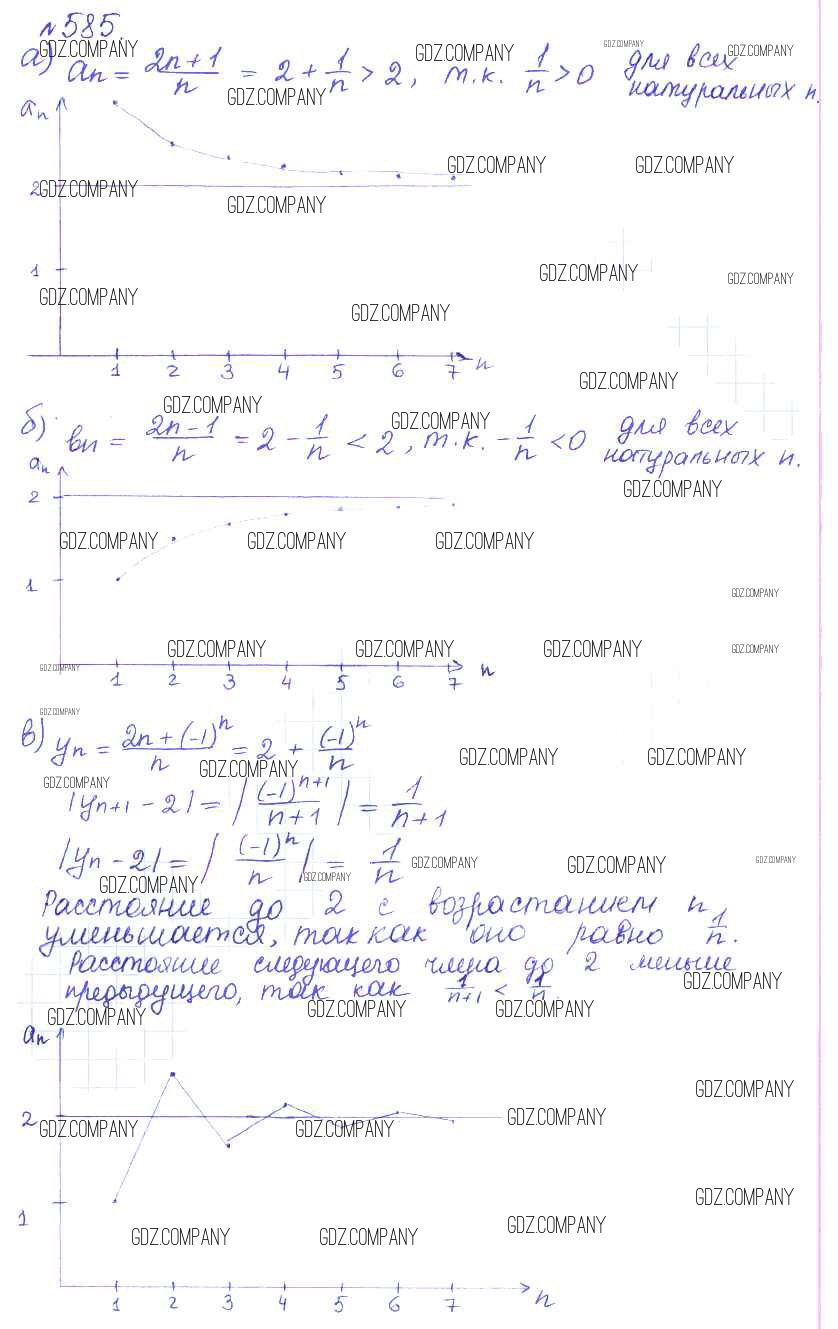 №585.
а) aₙ = (2n+1)/n = 2 + 1/n > 2, т.к. 1/n > 0 для всех
натуральных n.
aₙ
2
1
1 2 3 4 5 6 7 n
б) bₙ = (2n-1)/n = 2 - 1/n < 2, т.к. -1/n < 0 для всех
натуральных n.
aₙ
2
1
1 2 3 4 5 6 7 n
в) yₙ = (2n+(-1)ⁿ)/n = 2 + (-1)ⁿ/n
|yₙ₊₁ - 2| = |(-1)ⁿ⁺¹/(n+1)| = 1/(n+1)
|yₙ - 2| = |(-1)ⁿ/n| = 1/n
Расстояние до 2 с возрастанием n
уменьшается, так как оно равно 1/n.
Расстояние следующего члена до 2 меньше
предыдущего, так как 1/(n+1) < 1/n.
aₙ
2
1
1 2 3 4 5 6 7 n
GDZ.COMPANY